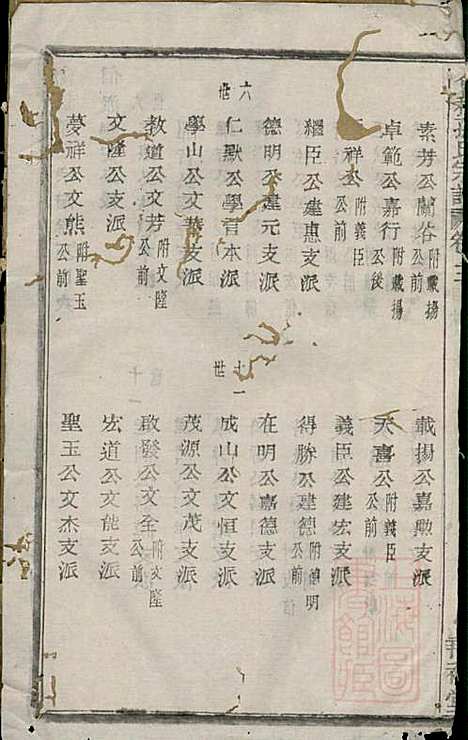 素芳公蘭谷附載揚公前
載揚公嘉勲支派
卓範公嘉行附載揚公後
天喜公附義臣公前
祥公附義臣公前
義臣公建宏支派
繩臣公建惠支派
得勝公建德附德明公前
德明公建元支派
在明公嘉德支派
六世
十一世
仁默公學書本派
成山公文恒支派
學山公文華支派
茂源公文茂支派
教道公文芳附文隆公前
啟發公文全附文隆公前
文隆公支派
宏道公文能支派
夢祥公文熊附聖玉公前
聖玉公文杰支派